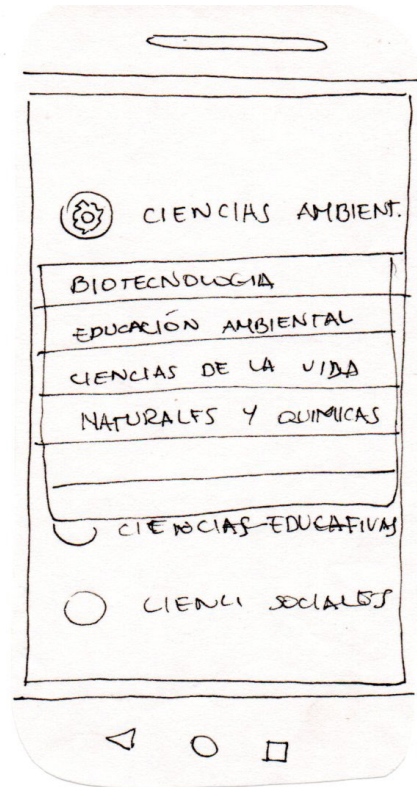 CIENCIAS AMBIENT.
BIOTECNOLOGIA
EDUCACIÓN AMBIENTAL
CIENCIAS DE LA VIDA
NATURALES Y QUIMICAS
CIENCIAS EDUCATIVAS
CIENCI SOCIALES